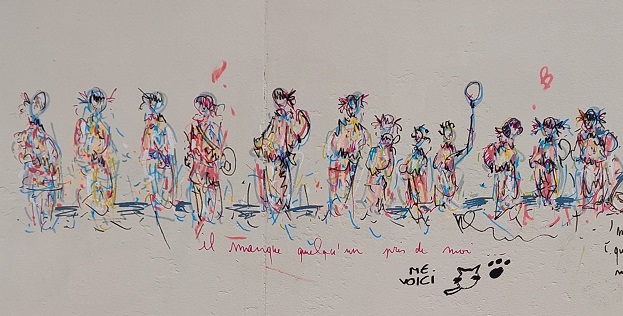 il manque quelqu'un près de moi
ME
VOICI